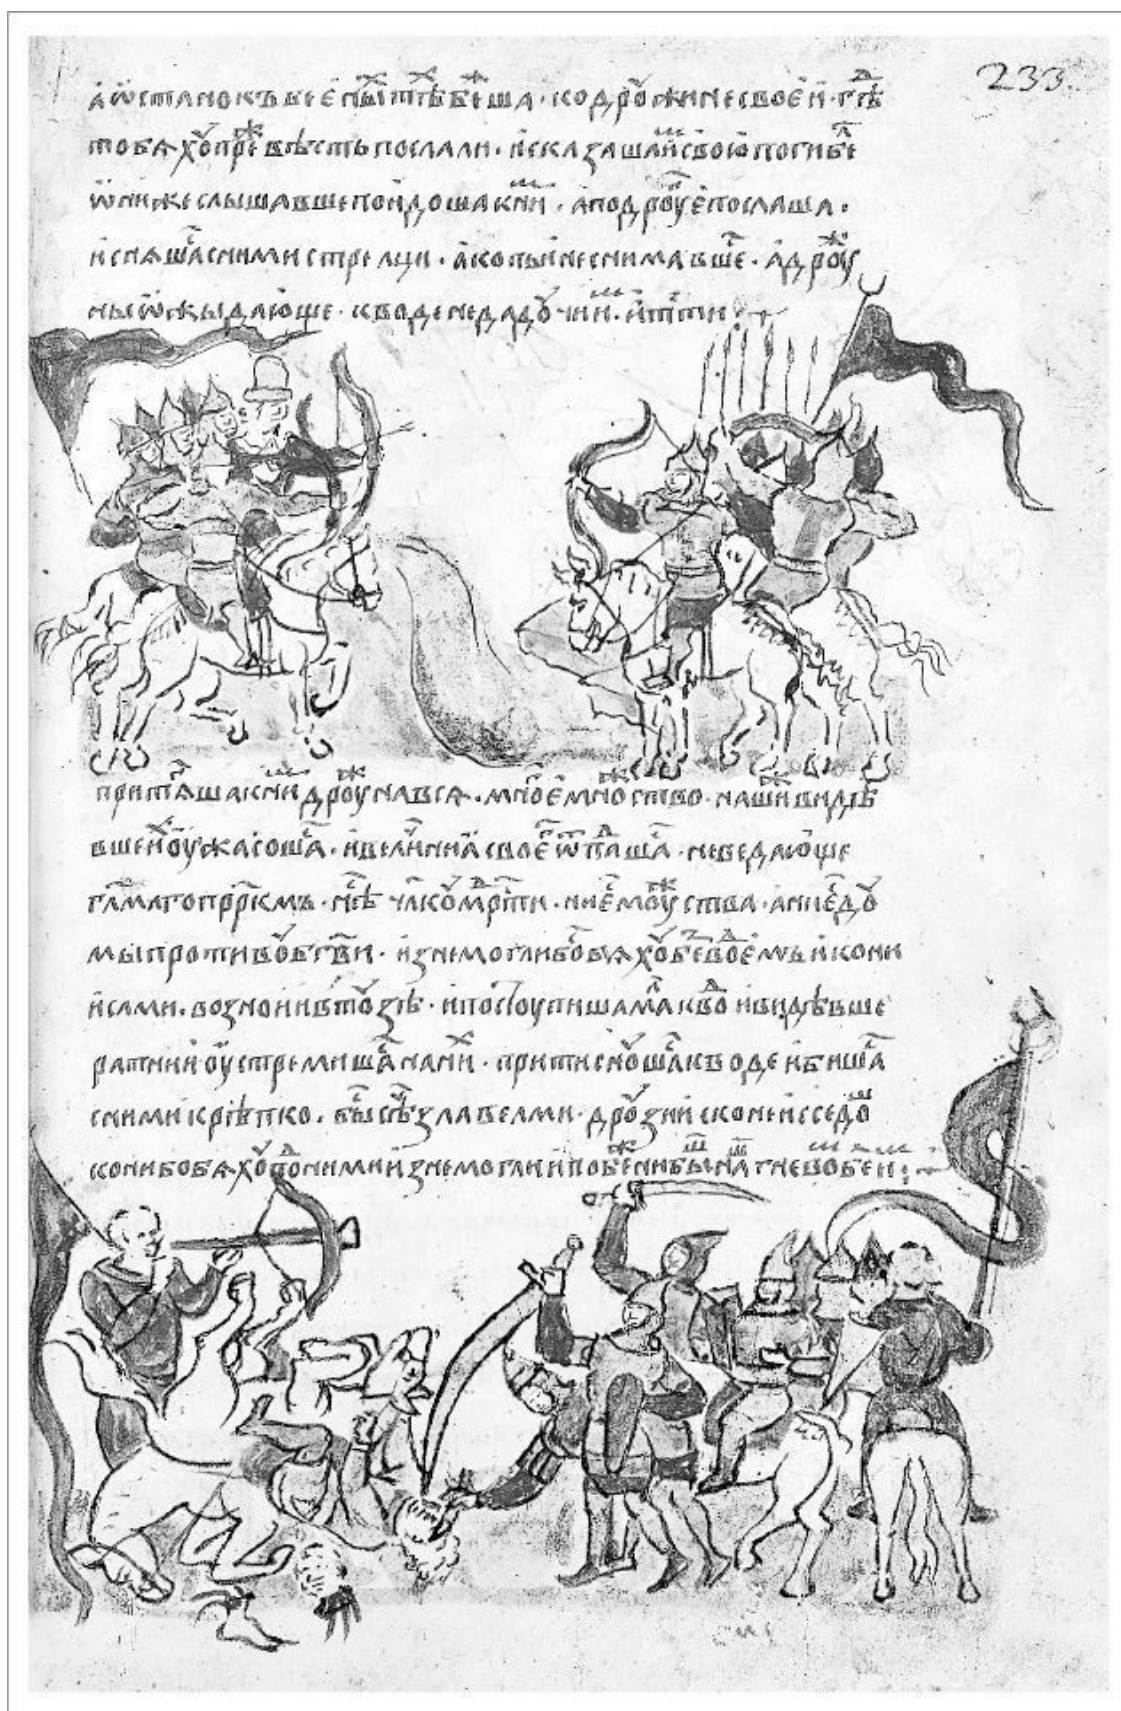 а ѿстанокъ вбе́гны̆ⷯ тѣⷯ бѣⷤша · ко дрꙋжине своеи · гⷣѣ
то бѧхꙋ прѣⷤ вѣсть послали · и сказашаиⷨ свою погибеⷧ
ѡни же слышавше поидоша к ниⷨ · а по дрꙋгїе послаша ·
и снѧшаⷭ с ними стрелци · а копьи не снимавшеⷭ · а дрꙋⷤ
ны ѡжыдающе · к воде не дадꙋчи иⷨ · итти
притѧⷭша к ниⷨ дрꙋⷤна всѧ · мноⷢое мноⷤство · наши видѣ
вше иⷯ ꙋжасошаⷭ · и величаниа своеⷢ ѿпаⷣшаⷭ · не ведающе
гл҃маго прⷪ҇ркмъ · нⷭ҇ѣ чл҃кꙋ мⷣрⷭти · ни еⷭ мꙋⷤства · ани еⷭ дꙋ
мы противꙋ бг҃ви · изнемогли бо бѧхꙋ беⷥвоⷣемъ и кони
и сами · во знои и в тꙋзѣ · и постꙋпиша маⷧ к воⷣ и видѣвше
ратнии ꙋстремишаⷭ на ниⷯ · притиснꙋшаⷭ к воде и бишаⷭ
с ними крѣпко · быⷭ сѣⷱ зла велми · дрꙋзии с конеи сседоⷲ
кони бо бѧхꙋ поⷣ ними изнемогли и побеⷤни быⷲ наⷲ гневоⷨ бж҃еиⷨ
233